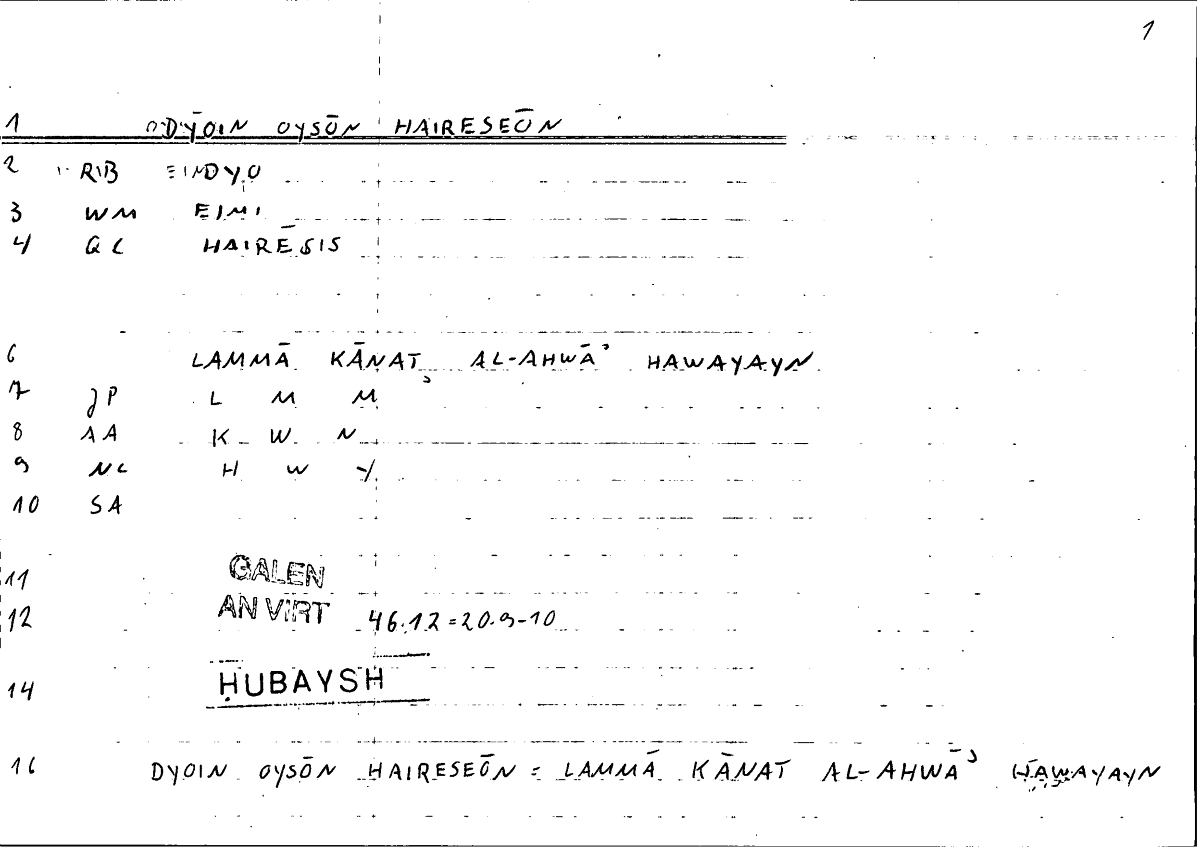 1
1 DYOIN OYSŌN HAIRESEŌN
2 RIB EINDYO
3 WM EIMI
4 GL HAIRĒSIS
6 LAMMĀ KĀNAT AL-AHWĀʾ HAWAYAYN
7 JP L M M
8 AA K W N
9 NL H W Y
10 SA
11 GALEN
12 AN VIRT 46.12=20.9-10
14 ḤUBAYSH
16 DYOIN OYSŌN HAIRESEŌN = LAMMĀ KĀNAT AL-AHWĀʾ HAWAYAYN